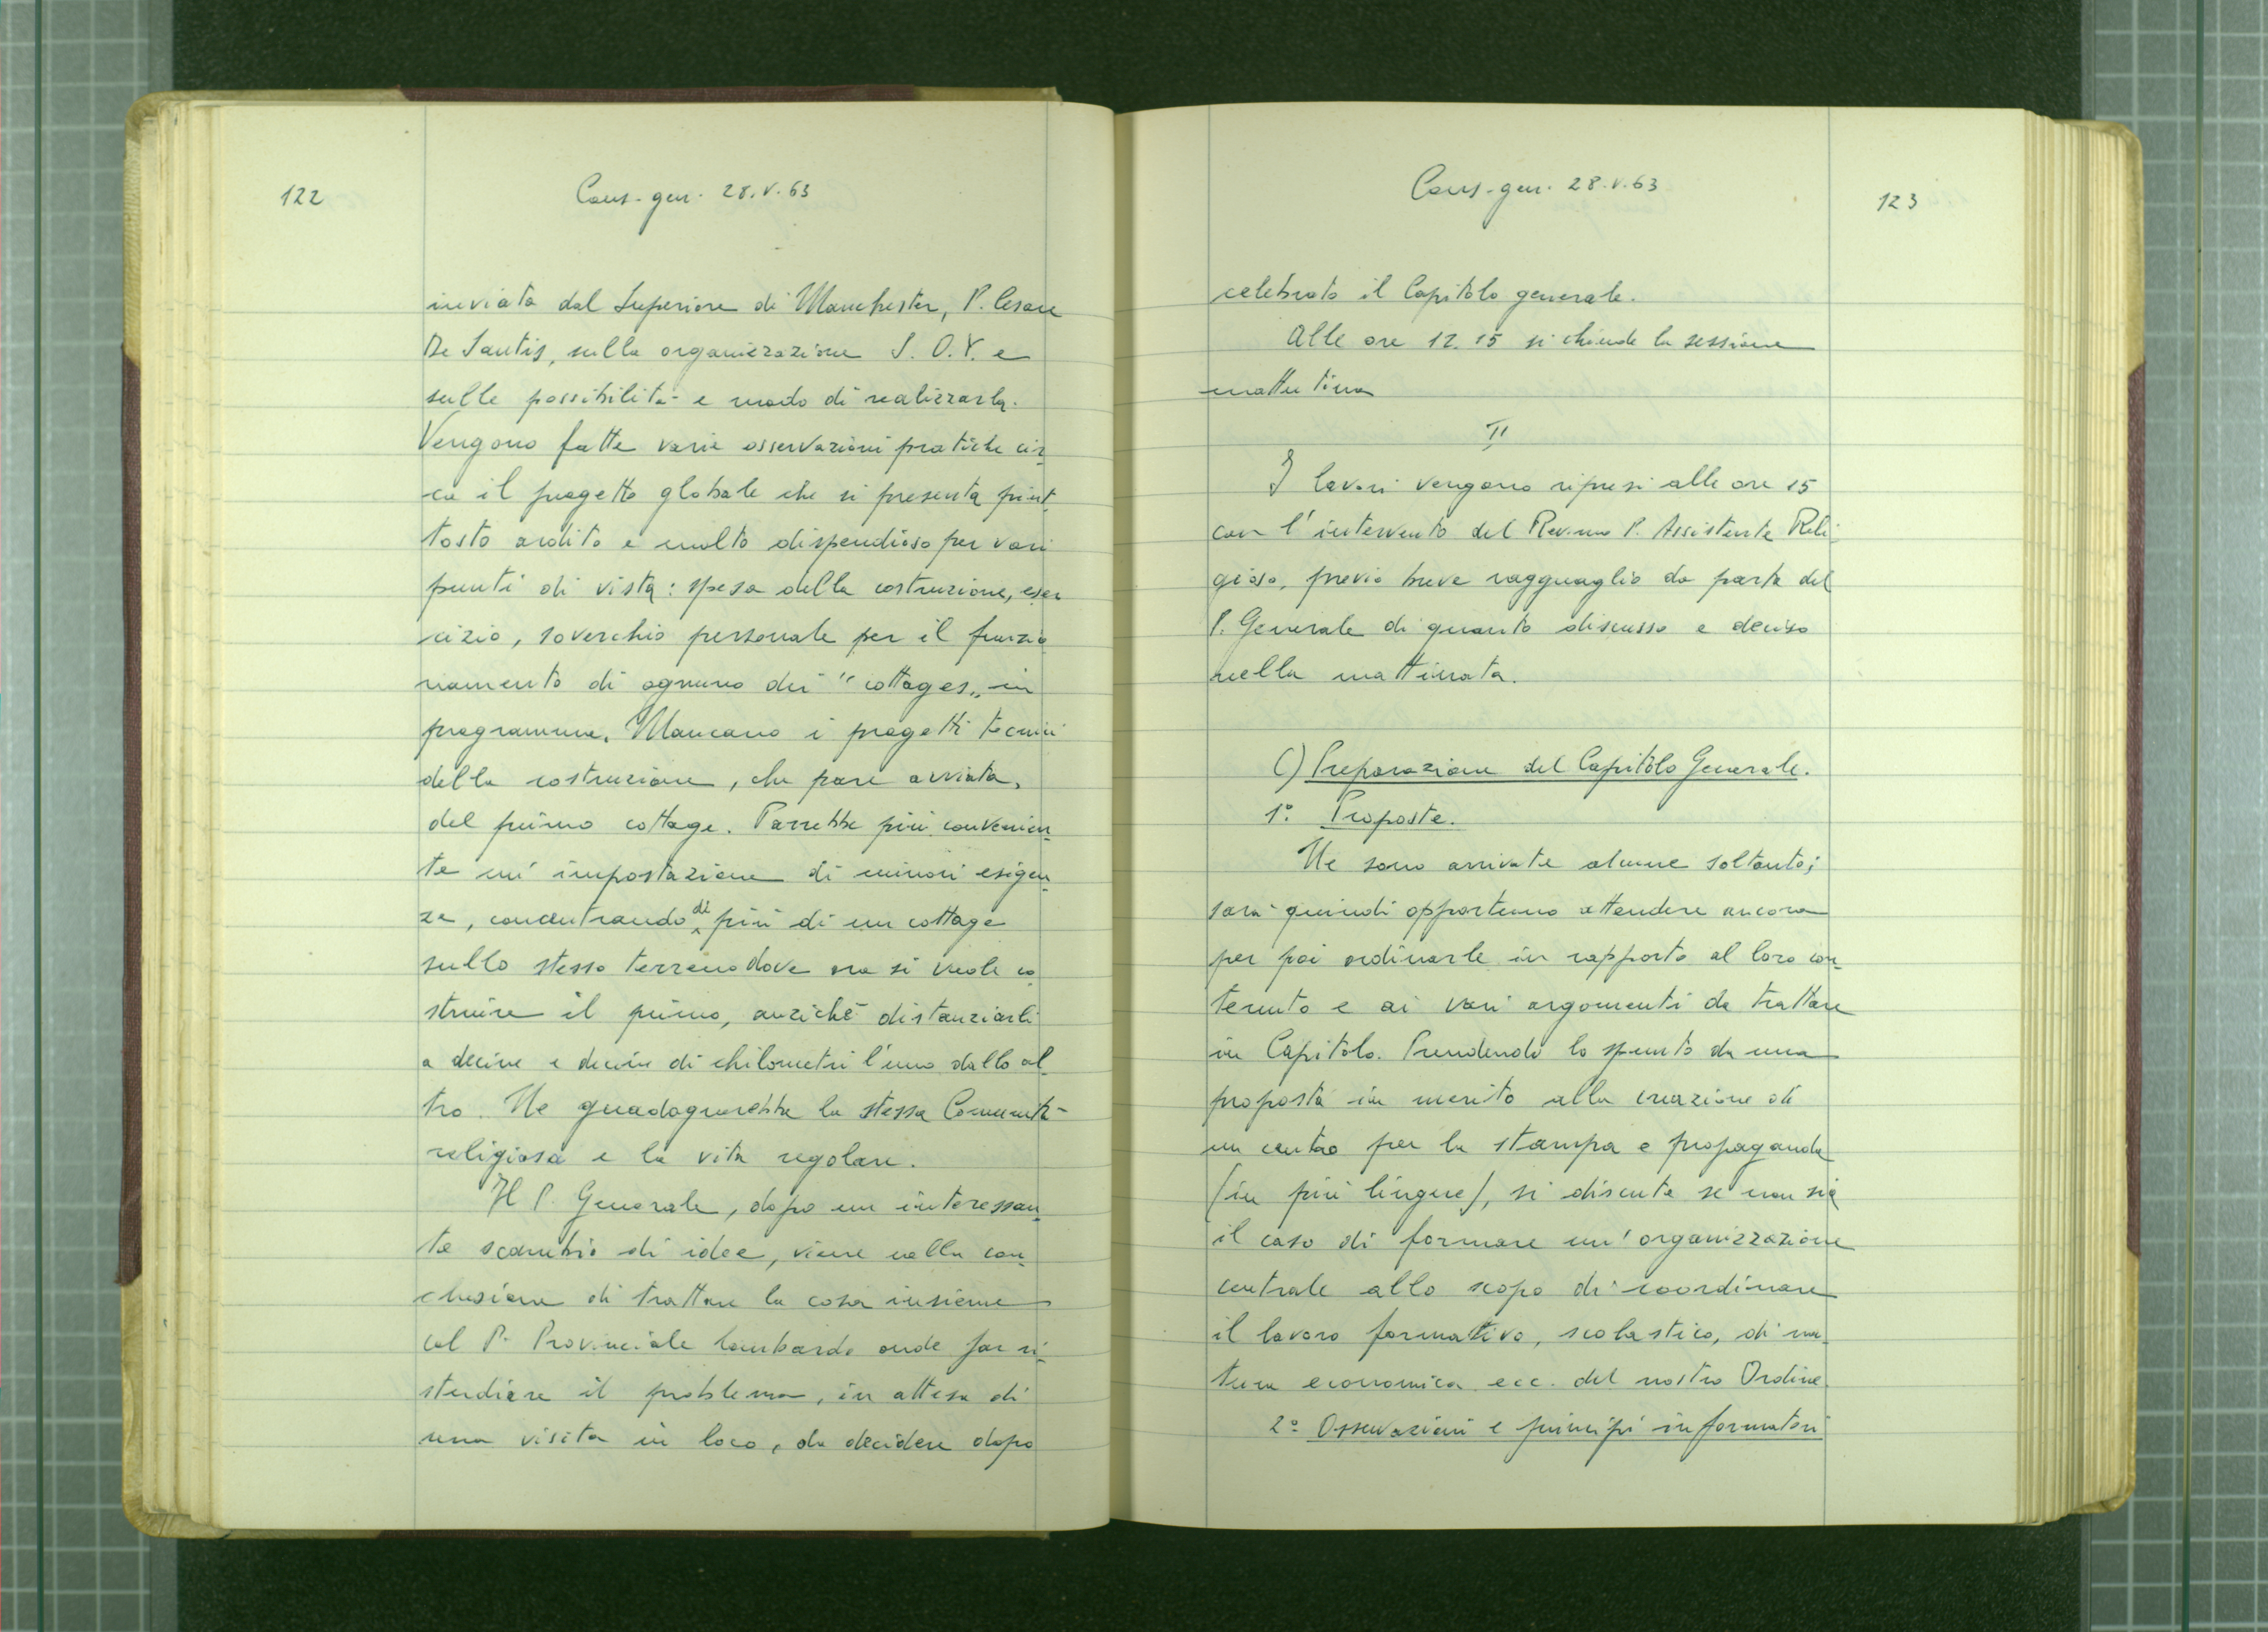 122
Cons. gen. 28.V.63
inviata dal Superiore di Manchester, P. Cesare
De Santis, sulla organizzazione S. O. Y. e
sulle possibilità e modo di realizzarla.
Vengono fatte varie osservazioni pratiche cir
ca il progetto globale che si presenta piut
tosto ardito e molto dispendioso per vari
punti di vista: spesa della costruzione, eser
cizio, soverchio personale per il funzio
namento di ognuno dei "cottages„ in
programma. Mancano i progetti tecnici
della costruzione, che pare avviata,
del primo cottage. Parrebbe più convenien
te un'impostazione di minori esigen
ze, concentrando di più di un cottage
sullo stesso terreno dove ora si vuole co
struire il primo, anziché distanziarli
a decine e decine di chilometri l'uno dallo al
tro. Ne guadagnerebbe la stessa Comunità
religiosa e la vita regolare.
Il P. Generale, dopo un interessan
te scambio di idee, viene nella con
clusione di trattare la cosa insieme
col P. Provinciale lombardo onde far ri
studiare il problema, in attesa di
una visita in loco, da decidere dopo
Cons. gen. 28.V.63
123
celebrato il Capitolo generale.
Alle ore 12.15 si chiude la sessione
mattutina
II
I lavori vengono ripresi alle ore 15
con l'intervento del Rev.mo P. Assistente Reli
gioso, previo breve ragguaglio da parte del
P. Generale di quanto discusso e deciso
nella mattinata.
C) Preparazione del Capitolo Generale.
1° Proposte.
Ne sono arrivate alcune soltanto;
sarà quindi opportuno attendere ancora
per poi ordinarle in rapporto al loro con
tenuto e ai vari argomenti da trattare
in Capitolo. Prendendo lo spunto da una
proposta in merito alla creazione di
un centro per la stampa e propaganda
(in più lingue), si discute se non sia
il caso di formare un'organizzazione
centrale allo scopo di coordinare
il lavoro formativo, scolastico, di na
tura economica ecc. del nostro Ordine.
2° Osservazioni e principi informatori